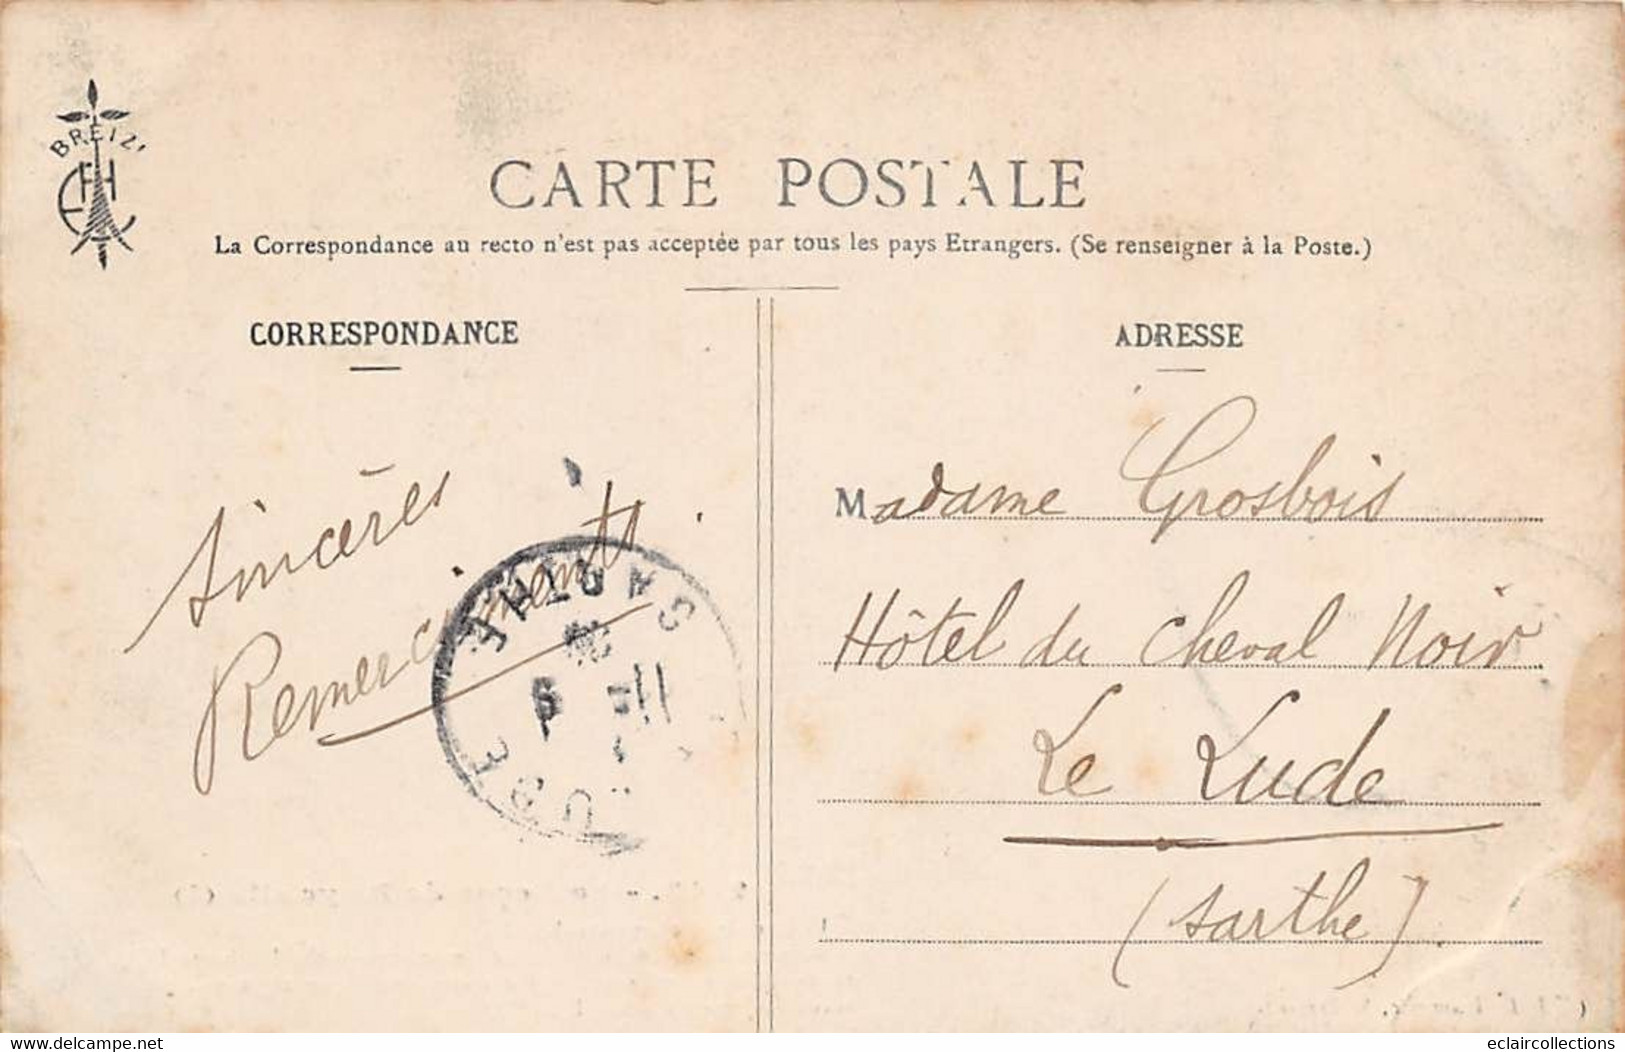 BREIZ'
CARTE POSTALE
La Correspondance au recto n'est pas acceptée par tous les pays Etrangers. (Se renseigner à la Poste.)
CORRESPONDANCE
ADRESSE
Sincères
Remerciements.
SARTHE
Madame Grosbois
Hôtel du Cheval Noir
Le Lude
(Sarthe).
www.delcampe.net
eclaircollections